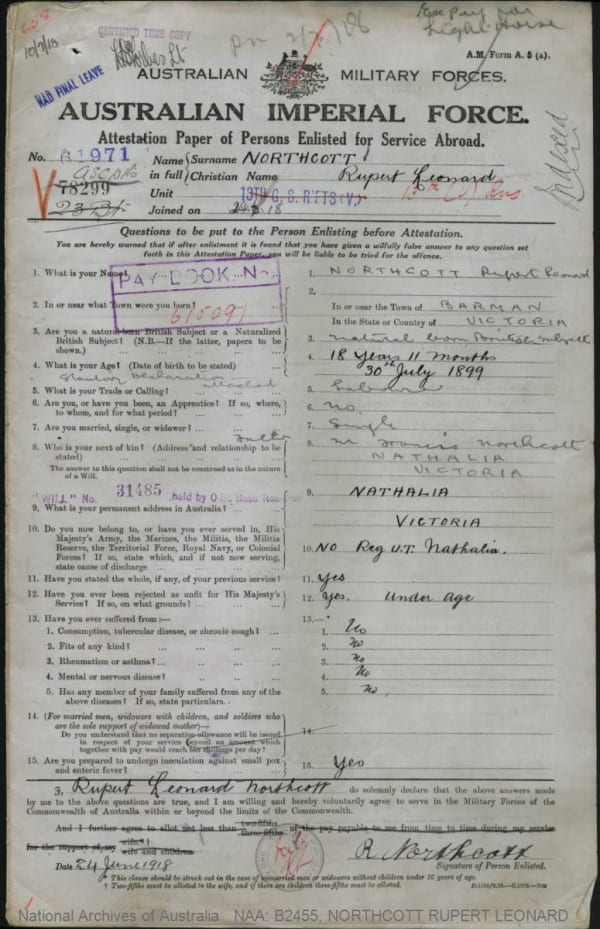 658
10/7/18
CERTIFIED TRUE COPY
Lt
HAD FINAL LEAVE
A.M. Form A. 5 (a).
AUSTRALIAN MILITARY FORCES.
AUSTRALIAN IMPERIAL FORCE.
Attestation Paper of Persons Enlisted for Service Abroad.
Indexed
No. 61971 Name in full { Surname NORTHCOTT
Christian Name Rupert Leonard
78299 Unit 13TH G. S. R'FTS (V)
Joined on 24.6.18
Questions to be put to the Person Enlisting before Attestation.
You are hereby warned that if after enlistment it is found that you have given a wilfully false answer to any question set
forth in this Attestation Paper, you will be liable to be tried for the offence.
PAY BOOK No
615091
1. What is your Name? 1. NORTHCOTT Rupert Leonard
2. In or near what Town were you born? 2. In or near the Town of BARMAN
In the State or Country of VICTORIA
3. Are you a natural born British Subject or a Naturalized
British Subject? (N.B.—If the latter, papers to be
shown.) 3. natural born British Subject
4. What is your Age? (Date of birth to be stated) 4. 18 Years 11 months
30th July 1899
Statutory Declaration attached
5. What is your Trade or Calling? 5. Labourer
6. Are you, or have you been, an Apprentice? If so, where,
to whom, and for what period? 6. no
7. Are you married, single, or widower? 7. Single
father
8. Who is your next of kin? (Address and relationship to be
stated) 8. Mr Francis Northcott
NATHALIA
VICTORIA
The answer to this question shall not be construed as in the nature
of a Will.
"WILL" No. 31485 held by O
9. What is your permanent address in Australia? 9. NATHALIA
VICTORIA
10. Do you now belong to, or have you ever served in, His
Majesty's Army, the Marines, the Militia, the Militia
Reserve, the Territorial Force, Royal Navy, or Colonial
Forces? If so, state which, and if not now serving,
state cause of discharge 10. NO Reg U.T. Nathalia.
11. Have you stated the whole, if any, of your previous service? 11. Yes
12. Have you ever been rejected as unfit for His Majesty's
Service? If so, on what grounds? 12. Yes. Under Age
13. Have you suffered from :— 13.—
1. Consumption, tubercular disease, or chronic cough? 1. No
2. Fits of any kind? 2. No
3. Rheumatism or asthma? 3. No
4. Mental or nervous disease? 4. No
5. Has any member of your family suffered from any of the
above diseases? If so, state particulars. 5. No.
14. (For married men, widowers with children, and soldiers who
are the sole support of widowed mother)—
Do you understand that no separation allowance will be issued
in respect of your service beyond an amount which
together with pay would reach ten shillings per day? 14.
15. Are you prepared to undergo inoculation against small pox
and enteric fever? 15. Yes
I, Rupert Leonard Northcott do solemnly declare that the above answers made
by me to the above questions are true, and I am willing and hereby voluntarily agree to serve in the Military Forces of the
Commonwealth of Australia within or beyond the limits of the Commonwealth.
And I further agree to allot not less than two-fifths three-fifths of the pay payable to me from time to time during my service
for the support of my wife.† wife and children.
Date 24 June 1918 R Northcott
Signature of Person Enlisted.
*This clause should be struck out in the case of unmarried men or widowers without children under 16 years of age.
† Two-fifths must be allotted to the wife, and if there are children three-fifths must be allotted.
National Archives of Australia NAA: B2455, NORTHCOTT RUPERT LEONARD